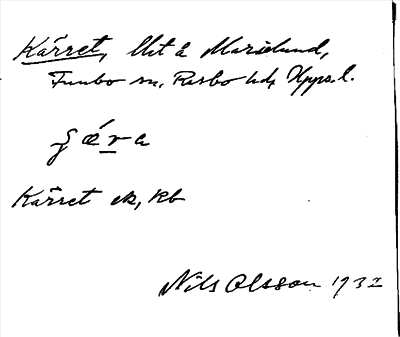 Kärret, lht å Marielund,
Funbo sn, Rasbo hd, Upps. l.
Kärret ek, kb
Nils Olsson 1932